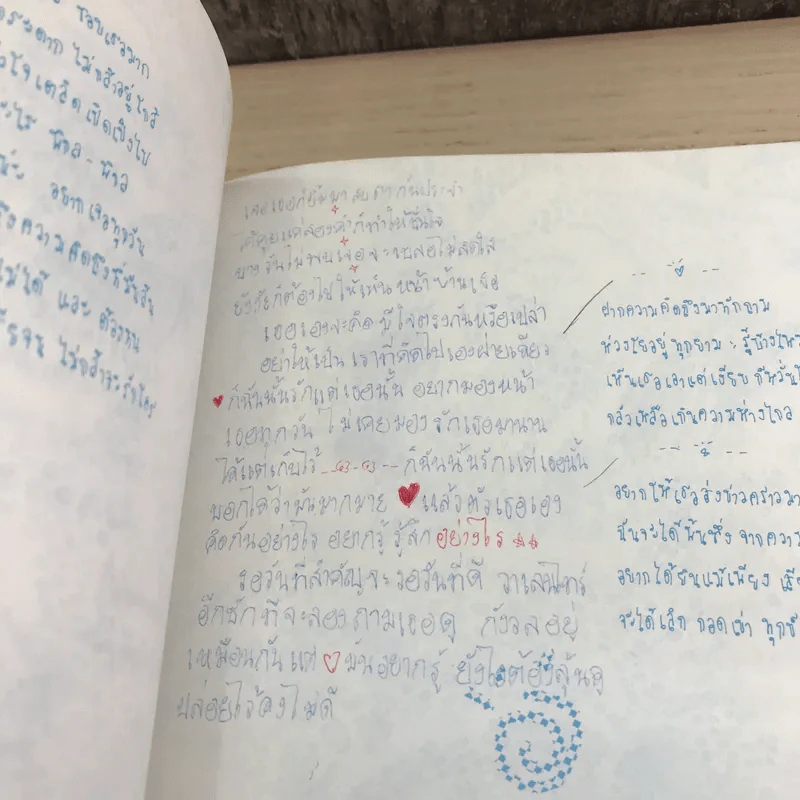 ชอบเธอมาก
ไม่กล้าอยู่ใกล้
เตลิดเปิดเปิงไป
อยากเจอทุกวัน
ความคิดถึงที่มันล้น
ไม่ได้ และ
ไม่กล้าจะรักใคร
เจอเธอก็ยิ้มมา สบตากันประจำ
ได้คุยแค่สองคำก็ทำให้ชื่นใจ
บางวันไม่พบเจอจะเบลอไม่สดใส
ยังไงก็ต้องไปให้เห็นหน้าบ้านเธอ
เธอเองจะคิด มีใจตรงกันหรือเปล่า
อย่าให้เป็น เราที่คิดไปเองฝ่ายเดียว
ก็ฉันนั้นรักแต่เธอนั้น อยากมองหน้า
เธอทุกวัน ไม่เคยมอง รักเธอมานาน
ได้แต่เก็บไว้ ก็ฉันนั้นรักแต่เธอนั้น
บอกได้ว่ามันมากมาย แล้วตัวเธอเอง
คิดกันอย่างไร อยากรู้ รู้สึกอย่างไร
รอวันที่สำคัญจะรอวันที่ดี วาเลนไทร์
อีกซักทีจะลองถามเธอดู กังวลอยู่
เหมือนกันแต่ มันอยากรู้ ยังไงต้องลุ้นดู
ปล่อยไว้คงไม่ดี
ฝากความคิดถึงมาทักทาย
ห่วงใยอยู่ทุกยาม รู้บ้างไหม
เห็นเธอเอาแต่เงียบ
กลัวเหลือเกินความห่างไกล
อยากให้เธอส่งข่าวคราว
ฉันจะได้ จากความ
อยากได้ยินแม้เพียง
จะได้เลิก กอดเข่า ทุกข์